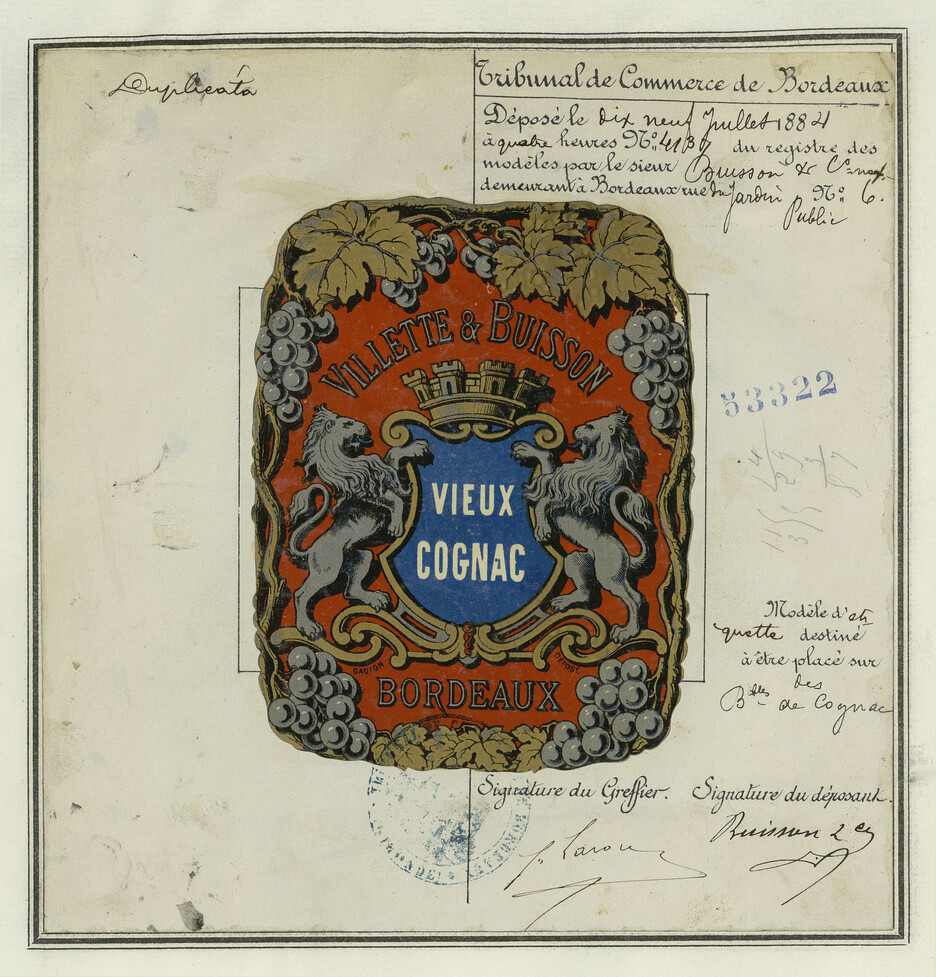 Duplicata
Tribunal de Commerce de Bordeaux
Déposé le dix neuf Juillet 1884
à quatre heures No: 4137 du registre des
modèles par le sieur Buisson & Cie
demeurant à Bordeaux rue du Jardin No: 6.
Public
VILLETTE & BUISSON
VIEUX
COGNAC
GAUTON DÉPOSÉ
BORDEAUX
53322
Modèle d'éti
quette destiné
à être placé sur
des
Blles de Cognac
Signature du Greffier. Signature du déposant.
Buisson